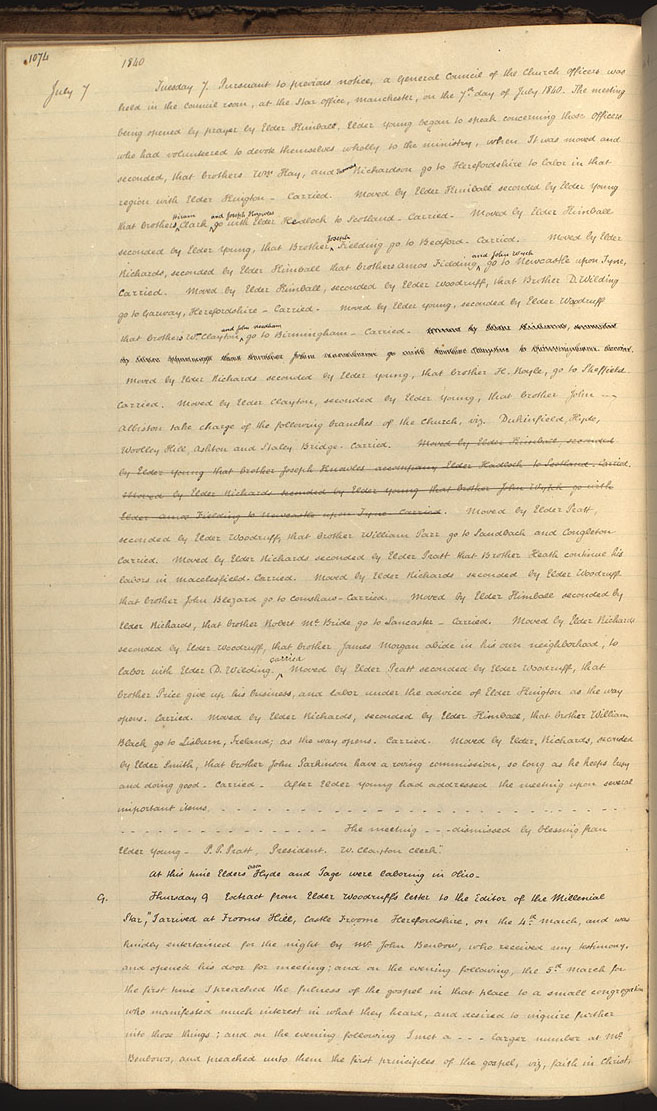 1074
1840
July 7 Tuesday 7. Pursuant to previous notice, a General Council of the Church officers was
held in the council room, at the Star office, Manchester, on the 7th day of July 1840. The meeting
being opened by prayer by Elder Kimball. Elder Young began to speak concerning those officers
who had volunteered to devote themselves wholly to the ministry, when It was moved and
seconded, that brothers Wm Hay, and James Richardson go to Herefordshire to labor in that
region with Elder Kington - Carried. Moved by Elder Kimball seconded by Elder Young
that brothers Hiram Clark, and Joseph Knowles go with Elder Hedlock to Scotland - Carried. Moved by Elder Kimball
seconded by Elder Young, that Brother Joseph Fielding go to Bedford - Carried. Moved by Elder
Richards, seconded by Elder Kimball that brothers Amos Fielding and John Wytch go to Newcastle upon Tyne,
Carried. Moved by Elder Kimball, seconded by Elder Woodruff, that Brother D. Wilding
go to Garway, Herefordshire - Carried. Moved by Elder Young, seconded by Elder Woodruff
that brothers Wm Clayton and John Needham go to Birmingham - Carried. Moved by Elder Richards, seconded
by Elder Woodruff that brother John Needham go with brother Clayton to Birmingham. Carried.
Moved by Elder Richards seconded by Elder Young, that brother H. Royle, go to Sheffield.
Carried. Moved by Elder Clayton, seconded by Elder Young, that brother John --
Albiston take charge of the following branches of the Church, viz. Dukinfield, Hyde,
Woolley Hill, Ashton and Staley Bridge. Carried. Moved by Elder Kimball, seconded
by Elder Young that brother Joseph Knowles accompany Elder Hadlock to Scotland. Carried.
Moved by Elder Richards seconded by Elder Young that brother John Wytch go with
Elder Amos Fielding to Newcastle upon Tyne Carried. Moved by Elder Pratt,
seconded by Elder Woodruff, that brother William Parr go to Sandbach and Congleton
Carried. Moved by Elder Richards seconded by Elder Pratt that Brother Heath continue his
labors in Macclesfield. Carried. Moved by Elder Richards seconded by Elder Woodruff
that brother John Blezard go to Cornshaw - Carried. Moved by Elder Kimball seconded by
Elder Richards, that brother Robert McBride go to Lancaster - Carried. Moved by Elder Richards
seconded by Elder Woodruff, that brother James Morgan abide in his own neighborhood, to
labor with Elder D. Wilding. carried Moved by Elder Pratt seconded by Elder Woodruff, that
brother Price give up his business, and labor under the advice of Elder Kington as the way
opens. Carried. Moved by Elder Richards, seconded by Elder Kimball, that brother William
Black go to Lisburn, Ireland; as the way opens. Carried. Moved by Elder Richards, seconded
by Elder Smith, that brother John Parkinson have a roving commission, so long as he keeps busy
and doing good - Carried - After Elder Young had addressed the meeting upon several
important items. - - - - - - - - - - - - - - - - - - - -
- - - - - - - - - - - The meeting - - - dismissed by blessing from
Elder Young - P. P. Pratt, President. W. Clayton Clerk."
At this time Elders Orson Hyde and Page were laboring in Ohio -
9. Thursday 9 Extract from Elder Woodruff's letter to the Editor of the Millenial
Star, "I arrived at Frooms Hill, Castle Froome Herefordshire, on the 4th March, and was
kindly entertained for the night by Mr John Benbow, who received my testimony,
and opened his door for meeting; and on the evening following, the 5th March for
the first time I preached the fulness of the gospel in that place to a small congregation
who manifested much interest in what they heard, and desired to inquire further
into those things; and on the evening following I met a - - - larger number at Mr
Benbows, and preached unto them the first principles of the gospel, viz, faith in Christ,